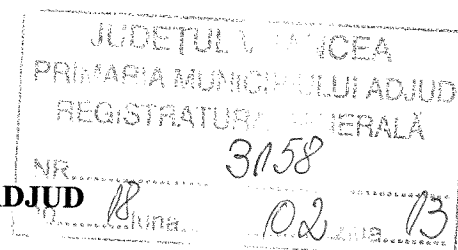 JUDEȚUL V NCEA
PRIMARIA MUNICIPIULUI ADJUD
REGISTRATURA ERALĂ
NR. 3158
DJUD
18 luna 02 13